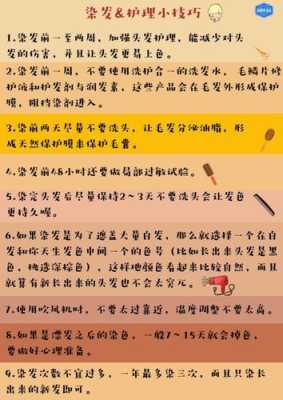 染发&护理小技巧
1.染发前一至两周，加强头发护理，能减少对头
发的伤害，并且让头发更易上色。
2.染发前一周，不要使用洗护合一的洗发水，毛鳞片修
护液和护发剂与润发素，这些产品会在毛发外形成保护
膜，阻挡染剂进入。
3.染发前两天尽量不要洗头，让毛发分泌油脂，形
成天然保护膜来保护毛囊。
4.染发前48小时还要做局部过敏试验。
5.染完头发后尽量保持2~3天不要洗头会让发色
更持久喔。
6.如果染发是为了遮盖大量白发，那么就选择一个在白
发和你天生发色中间一个的色号（比如长出来头发是黑
色，挑选深棕色），这样地颜色看起来比较自然，而且
就算有新长出来的头发也不会太突兀。
7.使用吹风机时，不要太过靠近，温度调整不要太高。
8.如果是漂发之后的染色，一般7~15天就会掉色，
要做好心理准备。
9.染发次数不宜过多，一年最多染三次，而且只染长
出来的新发即可。